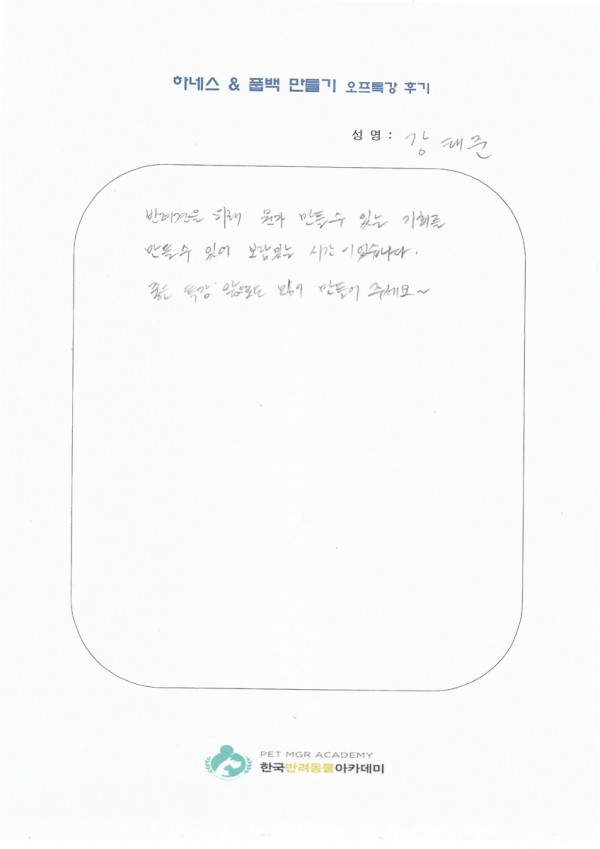 하네스 & 풉백 만들기 오프특강 후기
성 명 : 강태준
반려견을 위해 뭔가 만들수 있는 기회를
만들수 있어 보람있는 시간이었습니다.
좋은 특강 앞으로도 많이 만들어 주세요~
PET MGR ACADEMY
한국반려동물아카데미